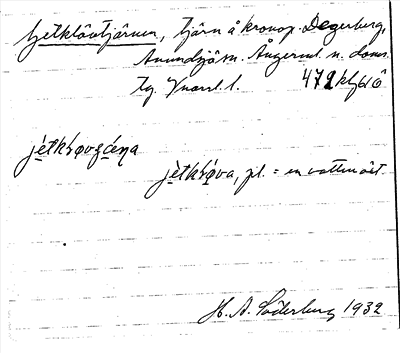 Getklövtjärnen, tjärn å kronop. Degerberg,
Anundsjö sn. Ångerml. n. doms.
tg. Vnorrl. l. 472 kbf 61 Ö
jètkl̥øvɟɛ́ṇa
jètkl̥øva, pl. = en vattenört.
H. A. Söderberg 1932